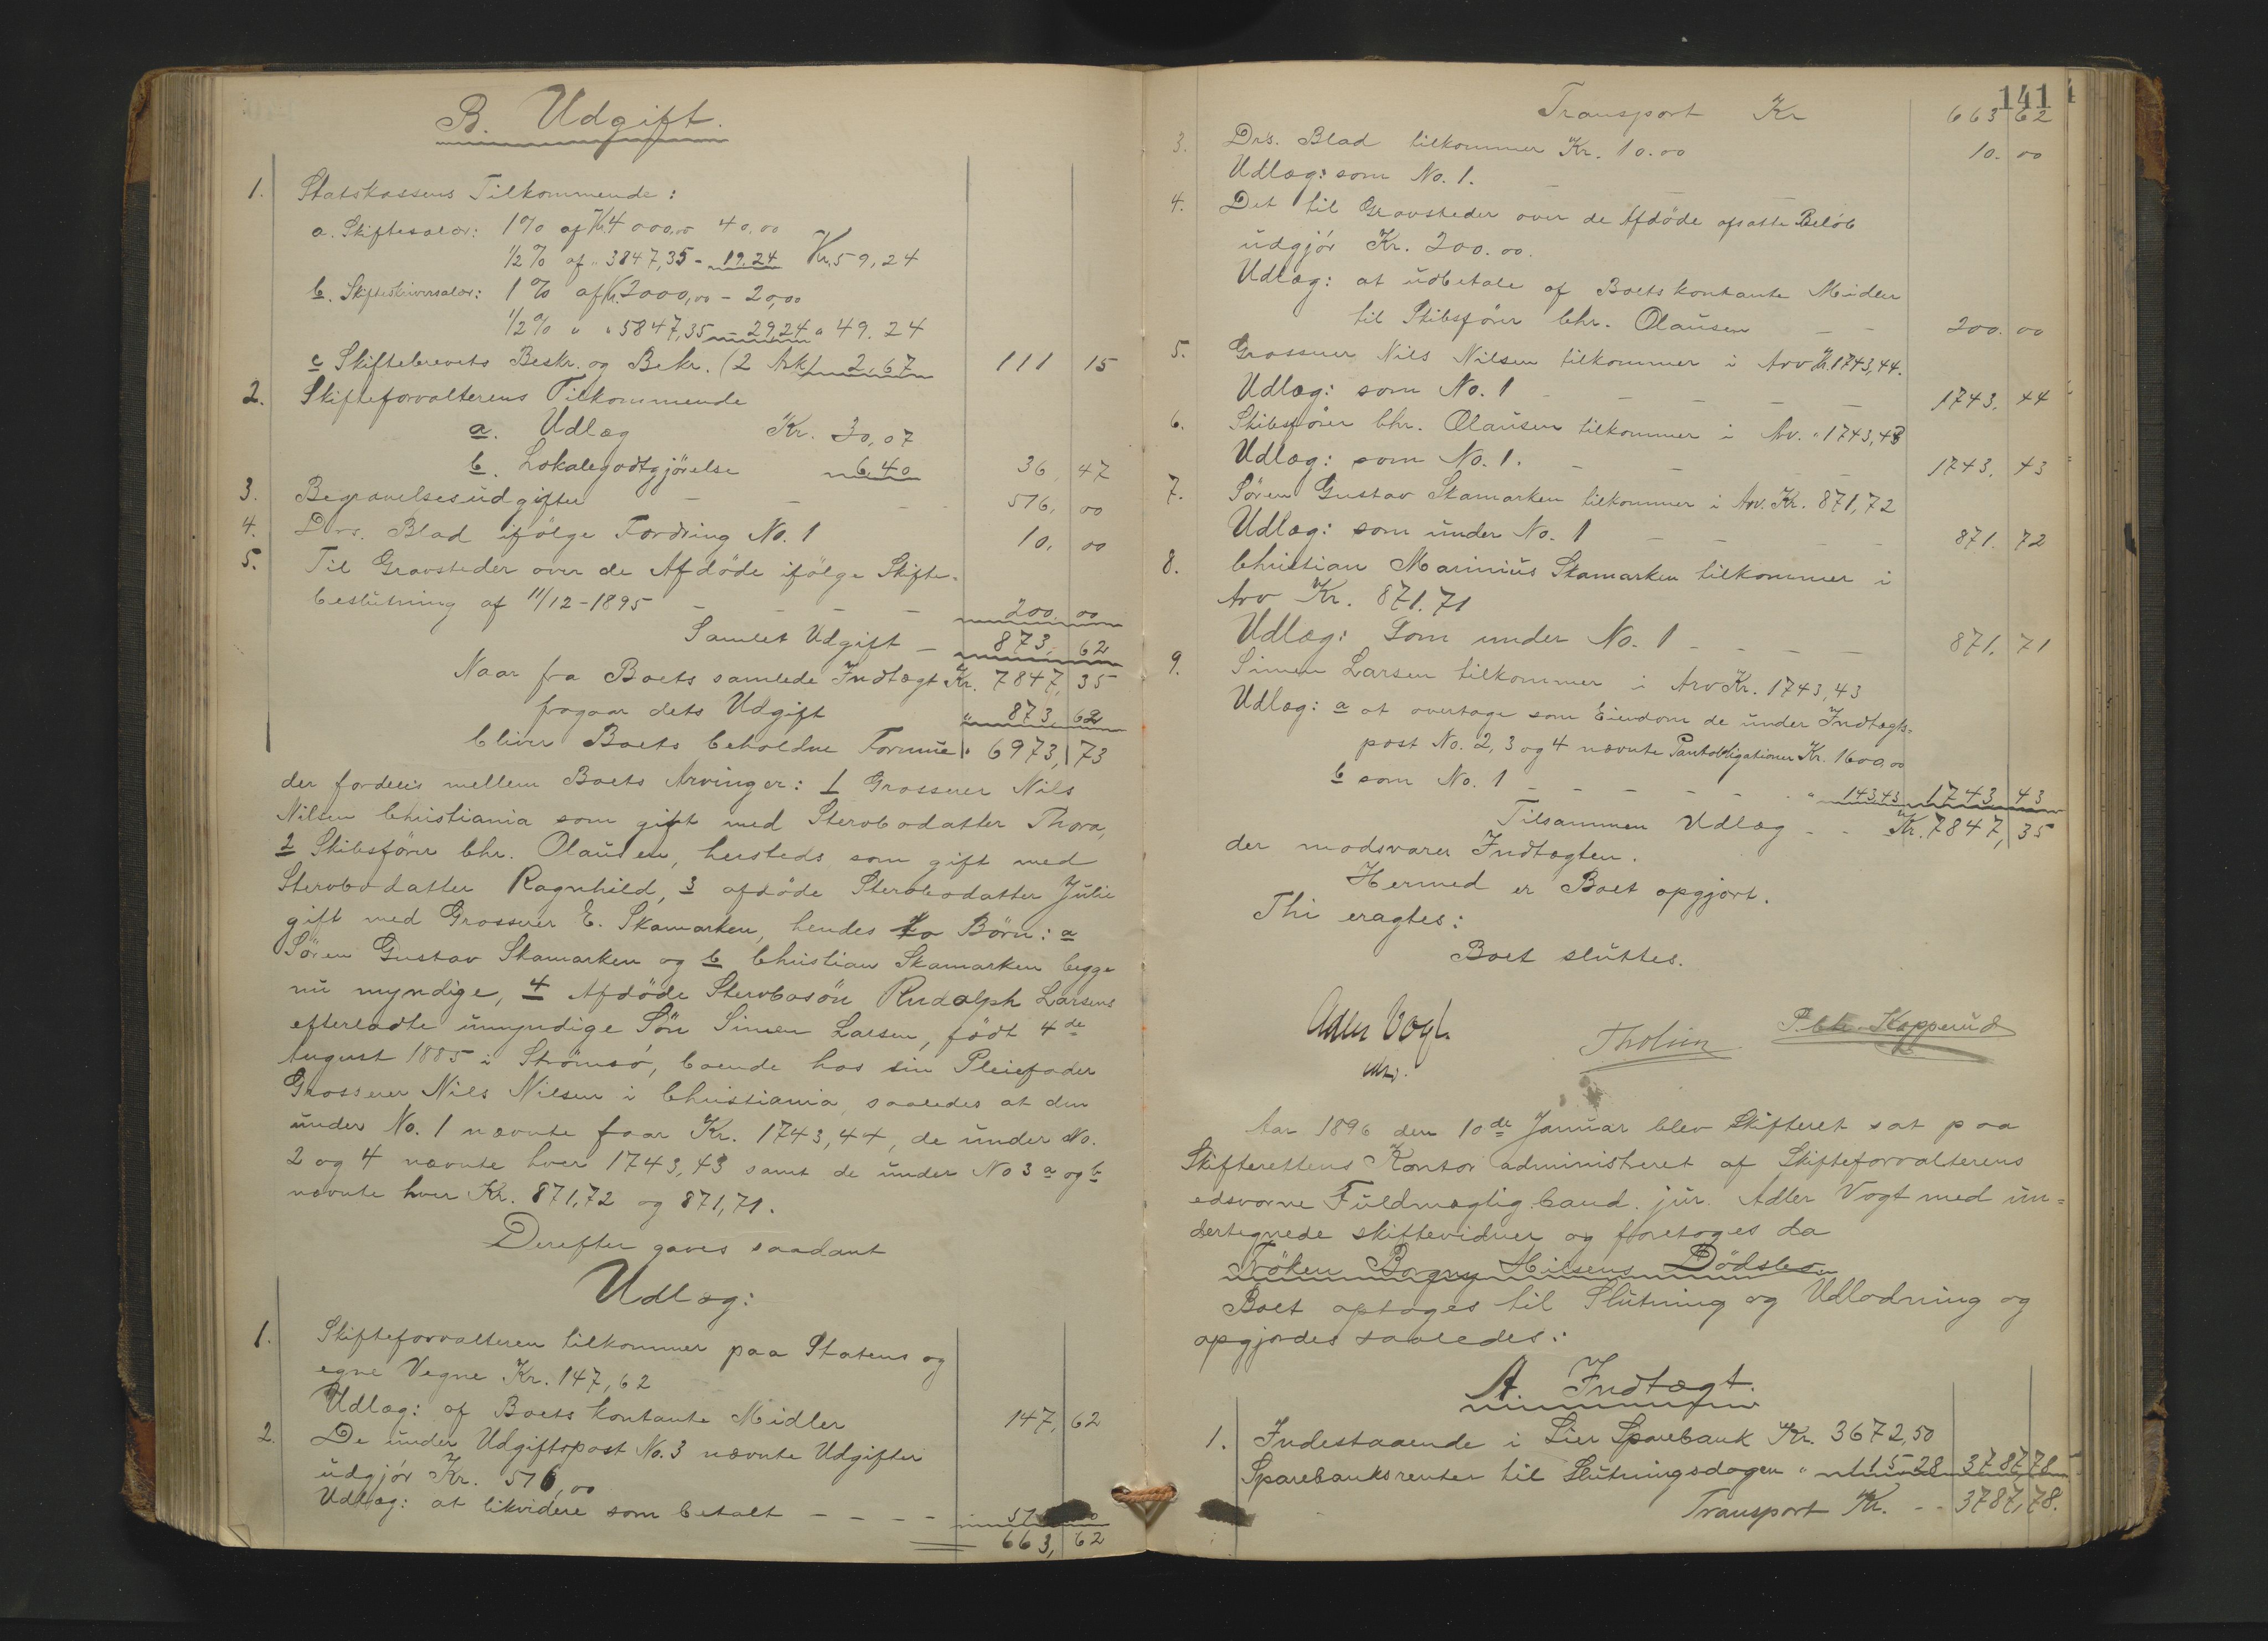 B. Udgift.
1. Statskassens Tilkommende:
a. Skiftesalær: 1% af Kr. 4000,00 40,00
1/2% af " 3847,35 - 19.24 Kr. 59,24
b. Skifteskriversalær: 1% af Kr. 2000,00 - 20,00
1/2% " " 5847,35 - 29,24 " 49.24
c Skiftebrevets Beskr. og Bekr. (2 Ark) 2,67 111 15
2. Skifteforvalterens Tilkommende
a. Udlæg Kr. 30,07
b. Lokalegodtgjörelse " 6,40 36, 47
3. Begravelsesudgifter - - - 516, 00
4. Drs. Blad ifölge Fordring No. 1 10, 00
5. Til Gravsteder over de Afdöde ifölge Skifte-
beslutning af 11/12-1895 - - - - 200, 00
Samlet Udgift - 873, 62
Naar fra Boets samlede Indtægt Kr. 7847, 35
fragaar dets Udgift " 873, 62
bliver Boets beholdne Formue " 6973, 73
der fordeles mellem Boets Arvinger: 1 Grosserer Nils
Nilsen Christiania som gift med Stervbodatter Thora,
2 Skibsförer Chr. Olausen, hersteds som gift med
Stervbodatter Ragnhild, 3 afdöde Stervbodatter Julie
gift med Grosserer E. Skamarken, hendes to Börn: a
Sören Gustav Skamarken og b Christian Skamarken begge
nu myndige, 4 Afdöde Stervbosön Rudolph Larsens
efterladte umyndige Sön Simen Larsen, födt 4de
August 1885 i Strömsö, boende hos sin Pleiefader
Grosserer Nils Nilsen i Christiania, saaledes at den
under No. 1 nævnte faar Kr. 1743,44, de under No.
2 og 4 nævnte hver 1743,43 samt de under No 3 a og b
nævnte hver Kr. 871,72 og 871,71.
Derefter gaves saadant
Udlæg:
1. Skifteforvalteren tilkommer paa Statens og
egne Vegne Kr. 147,62
Udlæg: af Boets kontante Midler 147, 62
2. De under Udgiftspost No. 3 nævnte Udgifter
udgjör Kr. 516,00
Udlæg: at likvidere som betalt - - - - 51
663, 62
141
Transport Kr 663 62
3. Drs. Blad tilkommer Kr. 10.00 10. 00
Udlæg: som No. 1. - - -
4. Det til Gravsteder over de Afdöde afsatte Belöb
udgjör Kr. 200.00.
Udlæg: at udbetale af Boets kontante Midler
til Skibsförer Chr. Olausen - - 200. 00
5. Grosserer Nils Nilsen tilkommer i Arv Kr. 1743,44.
Udlæg: som No. 1 - - - - - 1743. 44
6. Skibsförer Chr. Olausen tilkommer i Arv. " 1743,43
Udlæg: som No. 1. - - - - - 1743. 43
7. Sören Gustav Skamarken tilkommer i Arv. Kr. 871,72
Udlæg: som under No. 1 - - - - 871. 72
8. Christian Marinius Skamarken tilkommer i
Arv Kr. 871.71
Udlæg: Som under No. 1 - - - - 871. 71
9. Simen Larsen tilkommer i Arv Kr. 1743,43
Udlæg: a at overtage som Eiendom de under Indtægts-
post No. 2, 3 og 4 nævnte Pantobligationer Kr. 1600,00
b som No. 1 - - - - - - " 143,43 1743 43
Tilsammen Udlæg - - Kr. 7847, 35
der modsvarer Indtægten.
Hermed er Boet opgjort.
Thi eragtes:
Boet sluttes.
Adler Vogt.
Tholsin P. Chr. Kopperud
Aar 1896 den 10de Januar blev Skifteret sat paa
Skifterettens Kontor administreret af Skifteforvalterens
edsvorne Fuldmægtig Cand. jur. Adler Vogt med un-
dertegnede skiftevidner og foretoges da
Fröken Borgny Hilsens Dödsbo.
Boet optages til Slutning og Udlodning og
opgjordes saaledes:
A. Indtægt.
1. Indestaaende i Lier Sparebank Kr. 3672,50
Sparebanksrenter til Slutningsdagen " 115,28 3787,78
Transport Kr. - - 3787,78.